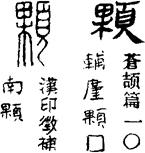 顆
蒼頡篇一〇
輔廑顆□
顆
漢印徵補
南顆